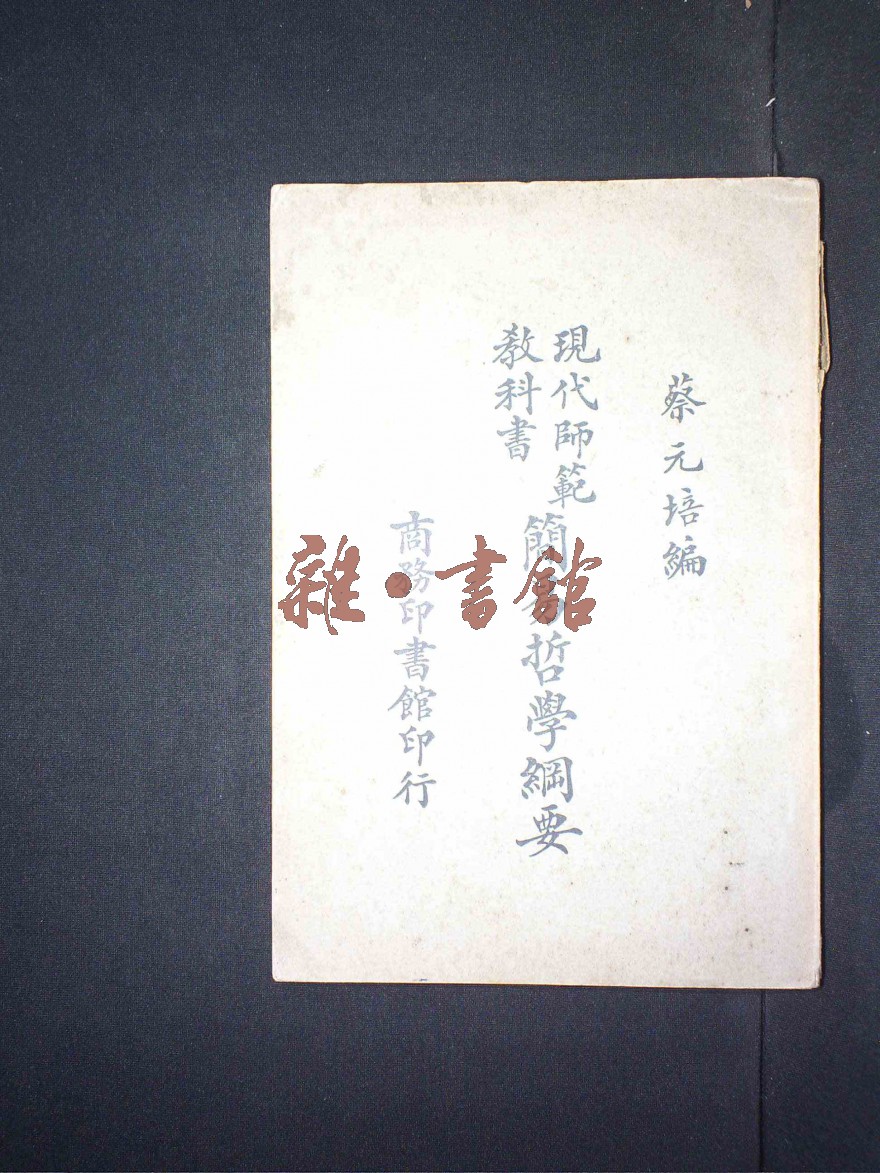 蔡元培編
現代師範
教科書
簡易哲學綱要
商務印書館印行
雜·書館